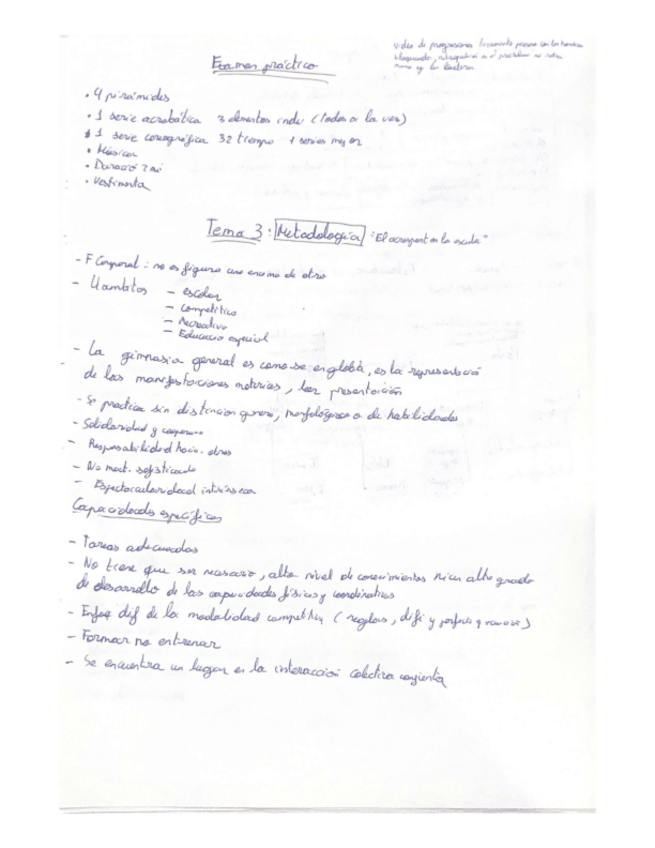 video de
Examen práctico
• 4 pirámides
• 1 serie acrobática 3 elementos indv (todos a la vez)
• 1 serie coreográfica 32 tiempo 4 series mejor
• Músicas
• Duració 2 mi
• Vestimenta
Tema 3: Metodología "El acrosport en la escuela"
- F Corporal: no es figura uno encima de otro
- 4 ambitos - escolar
- Competitivo
- Recreativo
- Educacio especial
- La gimnasia general es como se englobà, es la representació
de las manifestaciones motrices, las presentación
- Se practica sin distincion genero, morfológico o de habilidades
- Solidaridad y cooperac
- Responsabilidad hacia otros
- No mat. sofisticado
- Espectacularidad intrínseca
Capacidades específicas
- Tareas adecuadas
- No tiene que ser necesario, alto nivel de conocimientos ni un alto grado
de desarrollo de las capacidades físicas y coordinativas
- Enfoq dif de la modalidad competitiva (reglas, difi y
- Formar no entrenar
- Se encuentra un lugar en la interacción colectiva conjunta